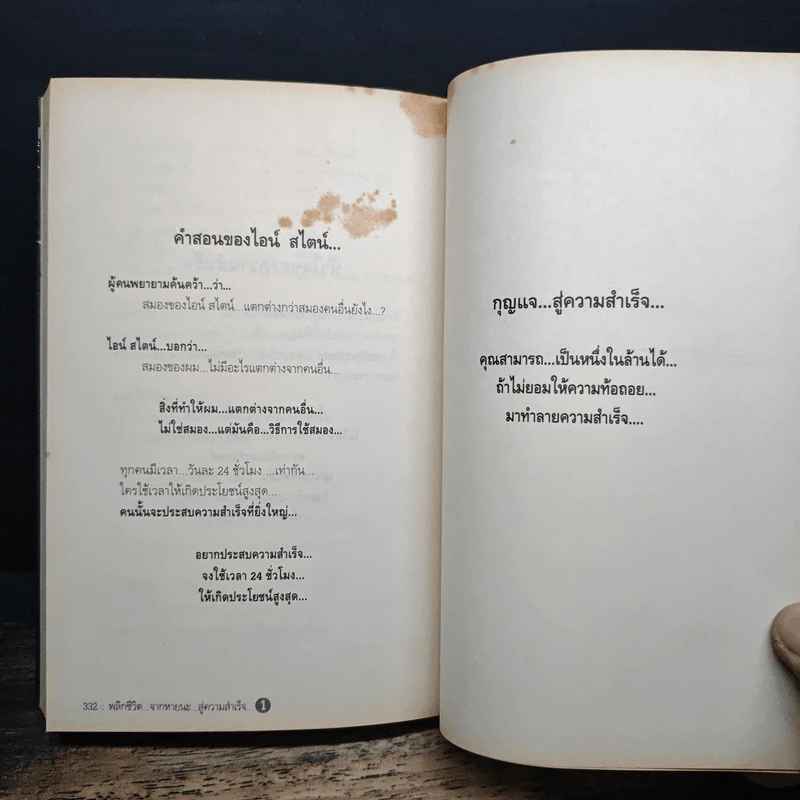 คำสอนของไอน์ สไตน์...
ผู้คนพยายามค้นคว้า...ว่า...
สมองของไอน์ สไตน์...แตกต่างกว่าสมองคนอื่นยังไง...?
ไอน์ สไตน์...บอกว่า...
สมองของผม...ไม่มีอะไรแตกต่างจากคนอื่น...
สิ่งที่ทำให้ผม...แตกต่างจากคนอื่น...
ไม่ใช่สมอง...แต่มันคือ...วิธีการใช้สมอง...
ทุกคนมีเวลา...วันละ 24 ชั่วโมง ...เท่ากัน...
ใครใช้เวลาให้เกิดประโยชน์สูงสุด...
คนนั้นจะประสบความสำเร็จที่ยิ่งใหญ่...
อยากประสบความสำเร็จ...
จงใช้เวลา 24 ชั่วโมง...
ให้เกิดประโยชน์สูงสุด...
332 : พลิกชีวิต...จากหายนะ...สู่ความสำเร็จ... 1
กุญแจ...สู่ความสำเร็จ...
คุณสามารถ...เป็นหนึ่งในล้านได้...
ถ้าไม่ยอมให้ความท้อถอย...
มาทำลายความสำเร็จ....